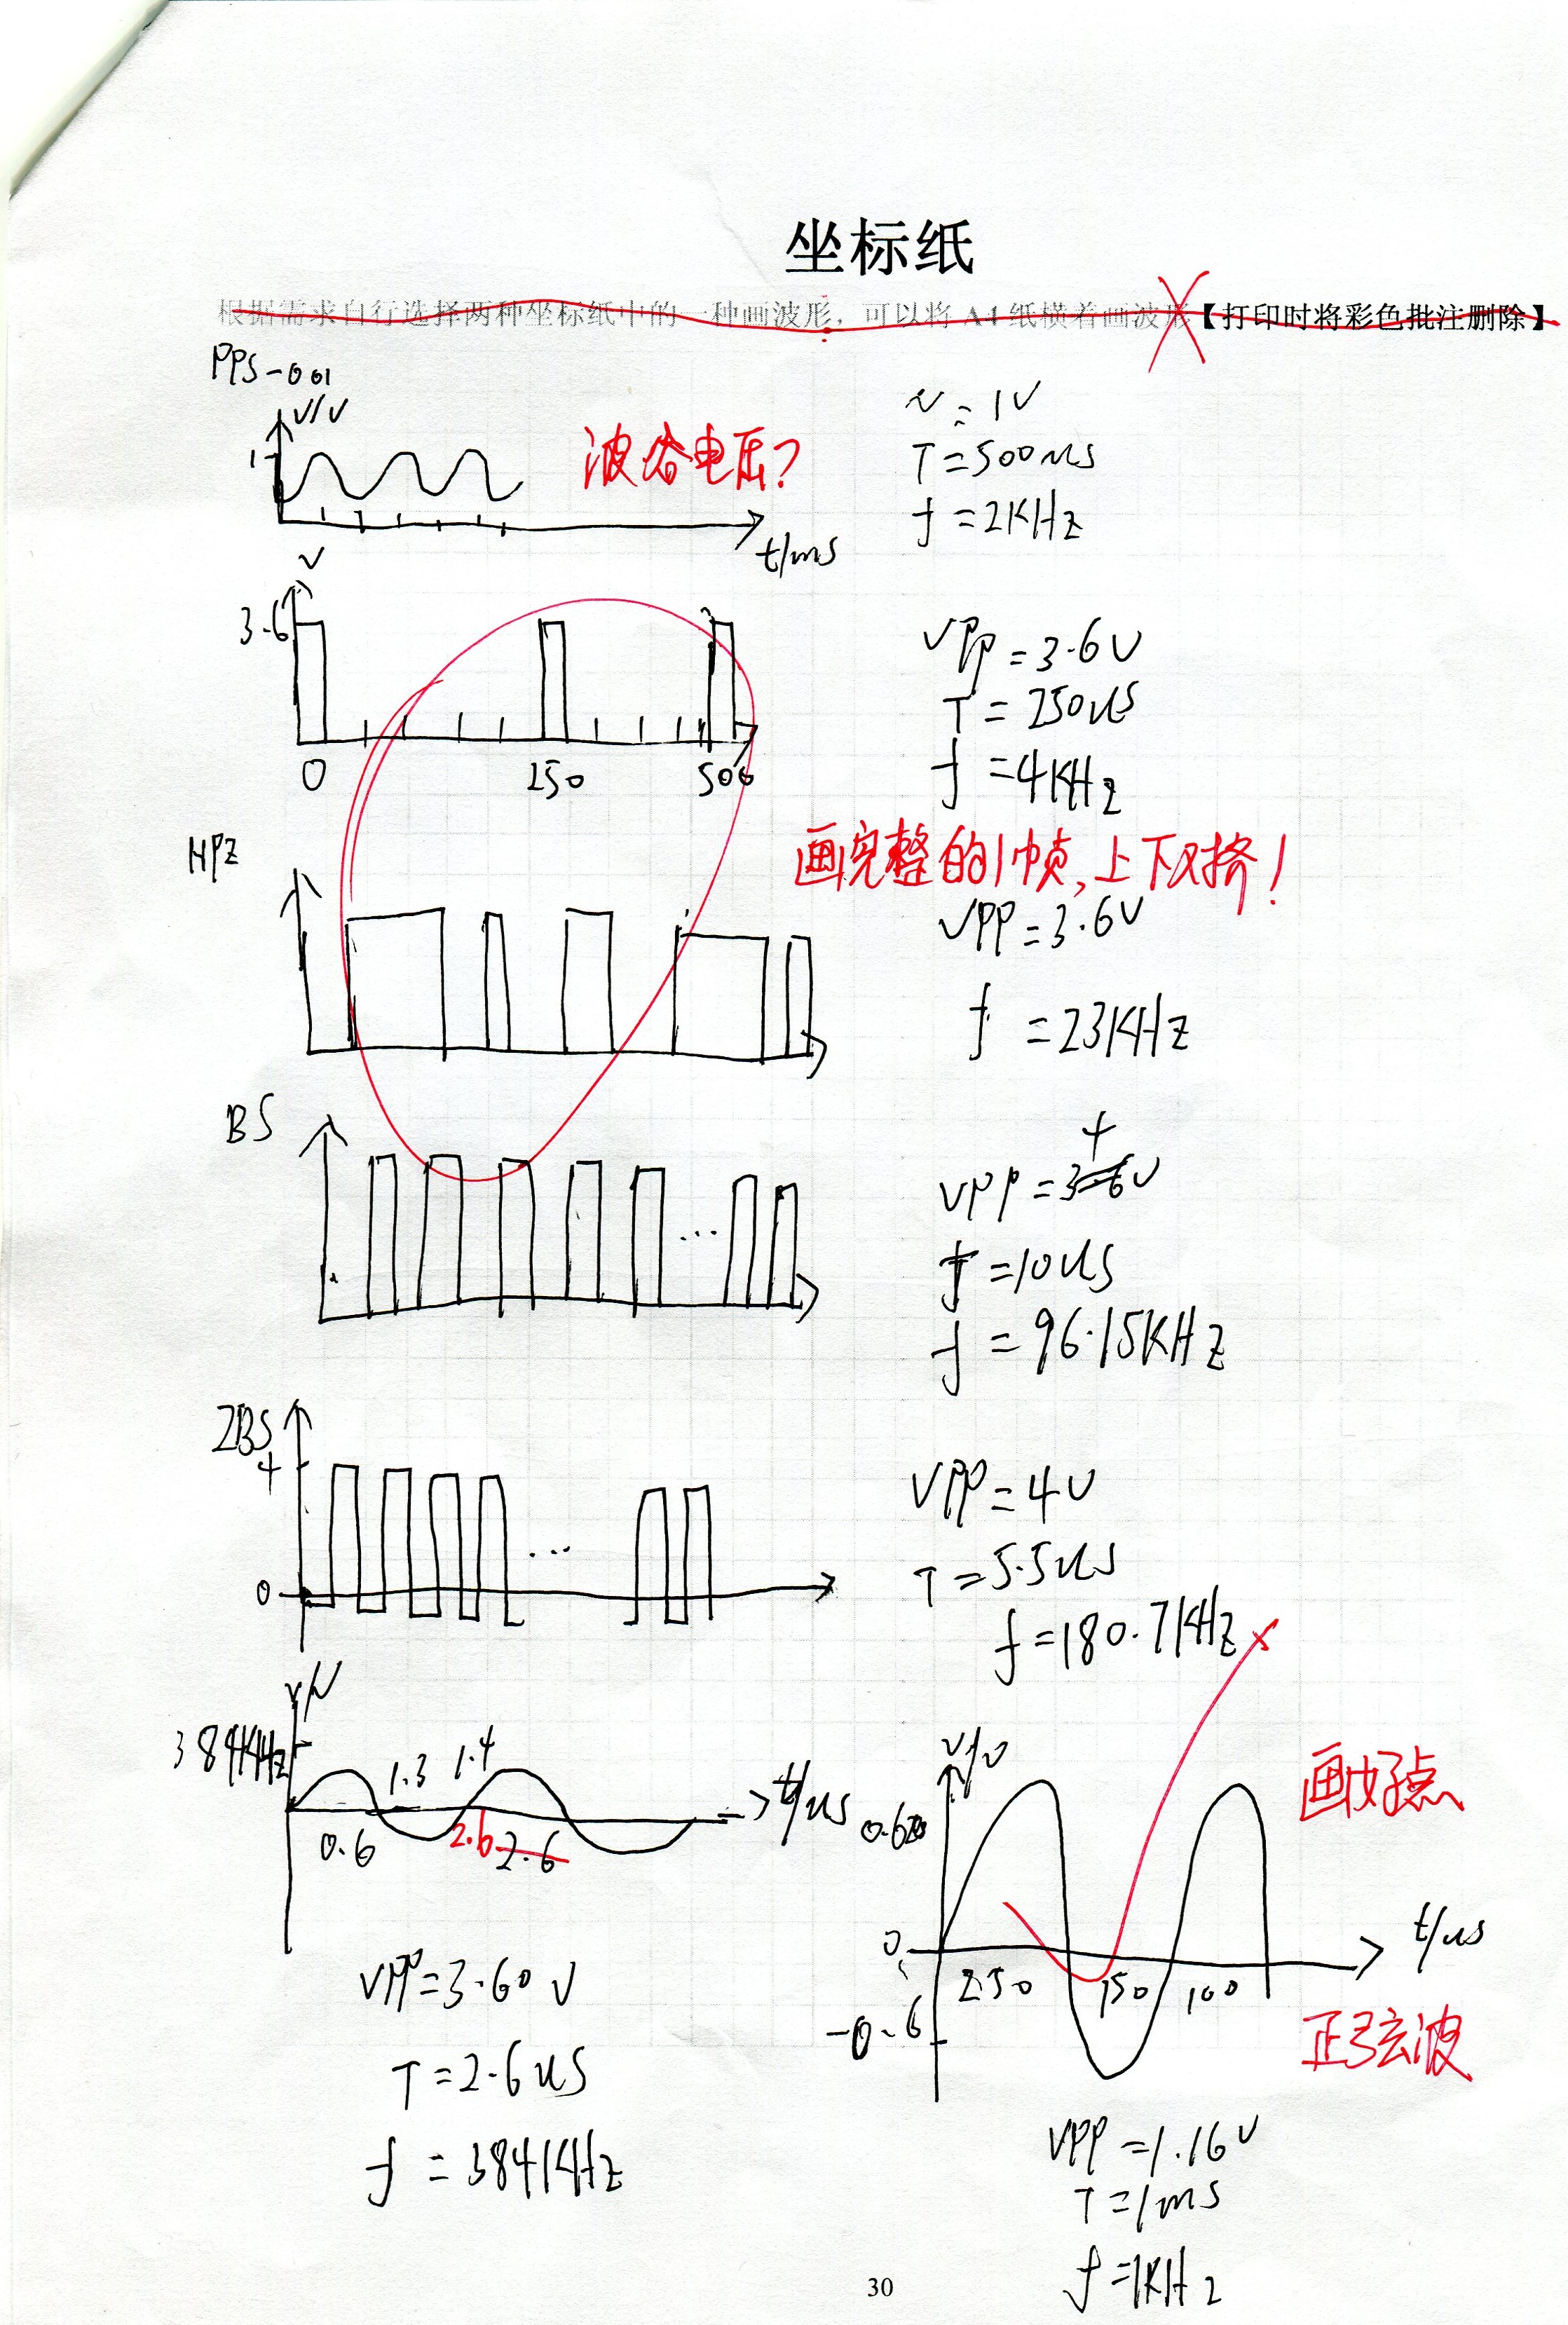 坐标纸
根据需求自行选择两种坐标纸中的一种画波形，可以将 A4 纸横着画波形【打印时将彩色批注删除】
PPS-001
V/V
1
t/ms
波谷电压?
V=1V
T=500us
f=2KHz
V
3.6
0 250 500
Vpp=3.6V
T=250us
f=4KHz
HPZ
画完整的1帧,上下对齐!
VPP=3.6V
f=23KHz
BS
4
VPP=3.6V
T=10us
f=96.15KHz
ZBS
4
0
...
VPP=4V
T=5.5us
f=180.7KHz
V/V
384KHz
1.3 1.4
t/us
0.6 2.6 2.6
VPP=3.60V
T=2.6us
f=384KHz
V/V
画好点
0
250 150 100
t/us
-0.6
正弦波
VPP=1.16V
T=1ms
f=1KHz
30